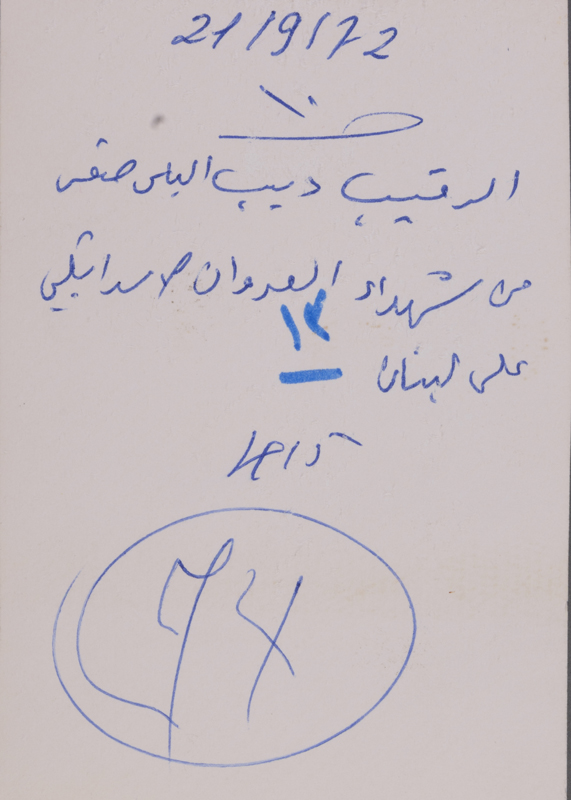 21/9/72
الرقيب ديب الياس صقر
من شهداء العدوان الاسرائيلي
١٣
على لبنان